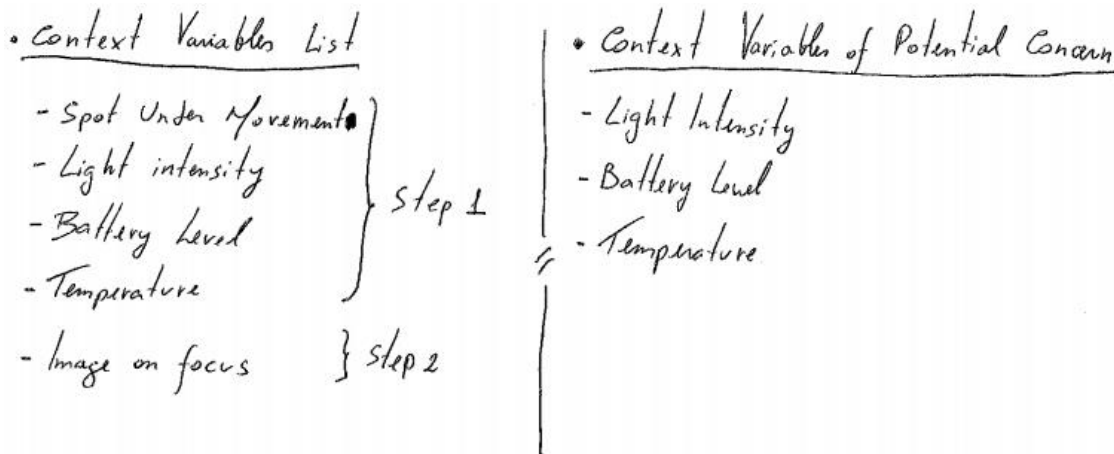 • Context Variables List
- Spot Under Movement
- Light intensity
- Battery Level
- Temperature
} Step 1
- Image on focus } Step 2
• Context Variables of Potential Concern
- Light Intensity
- Battery Level
- Temperature